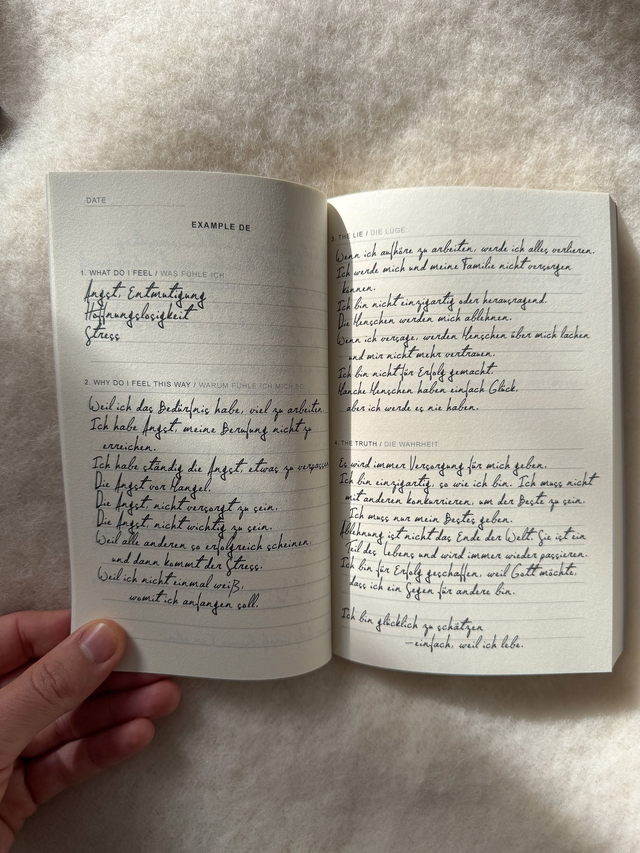 DATE
EXAMPLE DE
1. WHAT DO I FEEL / WAS FÜHLE ICH
Angst, Entmutigung
Hoffnungslosigkeit
Stress
2. WHY DO I FEEL THIS WAY / WARUM FÜHLE ICH MICH SO
Weil ich das Bedürfnis habe, viel zu arbeiten.
Ich habe Angst, meine Berufung nicht zu
erreichen.
Ich habe ständig die Angst, etwas zu verpassen
Die Angst vor Mangel.
Die Angst, nicht versorgt zu sein.
Die Angst, nicht wichtig zu sein.
Weil alle anderen so erfolgreich scheinen,
und dann kommt der Stress.
Weil ich nicht einmal weiß,
womit ich anfangen soll.
3. THE LIE / DIE LÜGE
Wenn ich aufhöre zu arbeiten, werde ich alles verlieren.
Ich werde mich und meine Familie nicht versorgen
können.
Ich bin nicht einzigartig oder herausragend.
Die Menschen werden mich ablehnen.
Wenn ich versage, werden Menschen über mich lachen
und mir nicht mehr vertrauen.
Ich bin nicht für Erfolg gemacht.
Manche Menschen haben einfach Glück,
aber ich werde es nie haben.
4. THE TRUTH / DIE WAHRHEIT
Es wird immer Versorgung für mich geben.
Ich bin einzigartig, so wie ich bin. Ich muss nicht
mit anderen konkurrieren, um der Beste zu sein.
Ich muss nur mein Bestes geben.
Ablehnung ist nicht das Ende der Welt. Sie ist ein
Teil des Lebens und wird immer wieder passieren.
Ich bin für Erfolg geschaffen, weil Gott möchte,
dass ich ein Segen für andere bin.
Ich bin glücklich zu schätzen
—einfach, weil ich lebe.